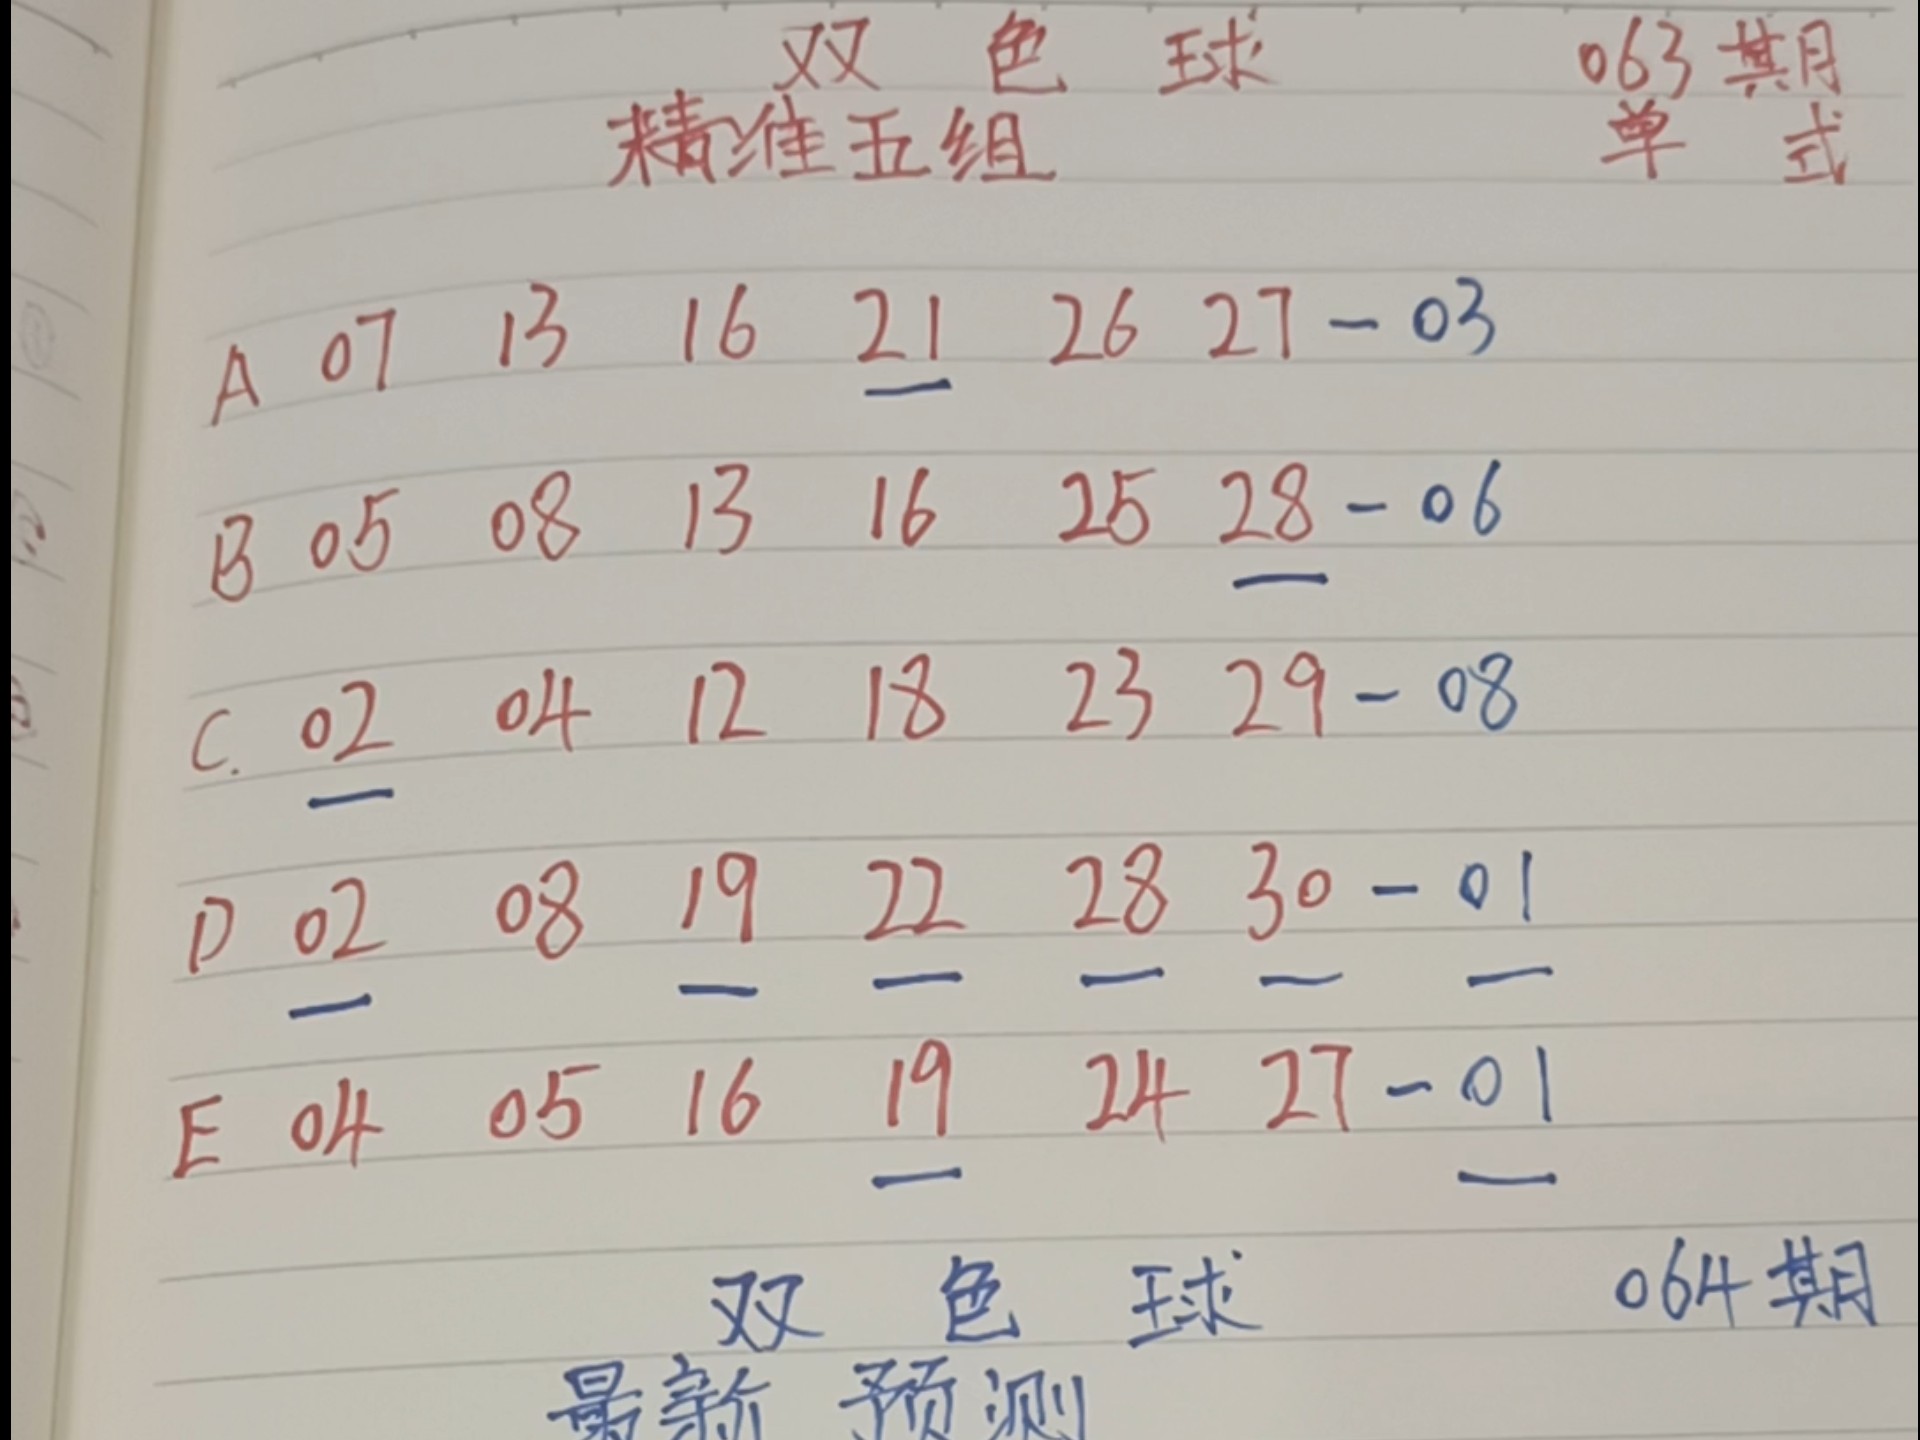 双 色 球 063期
精准五组 单 式
A 07 13 16 21 26 27 - 03
B 05 08 13 16 25 28 - 06
C. 02 04 12 18 23 29 - 08
D 02 08 19 22 28 30 - 01
E 04 05 16 19 24 27 - 01
双 色 球 064期
最新 预测